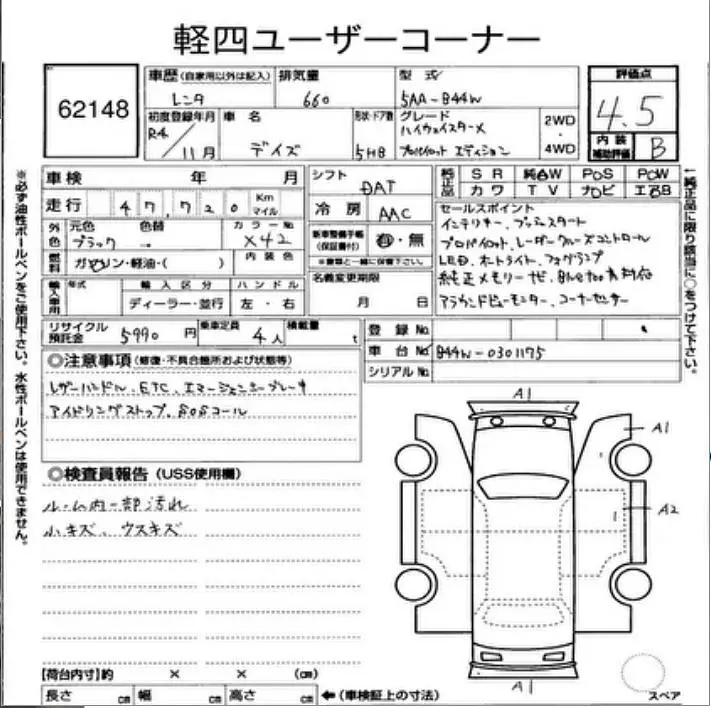 軽四ユーザーコーナー
62148
車歴(自家用以外は記入) 排気量 型式 評価点
レンタ 660 5AA-B44W 4.5
初度登録年月 車名 形状・ドア数 グレード 2WD・4WD
R4/11月 デイズ 5HB ハイウェイスターX プロパイロット エディション
内装補助評価 B
車検 年 月 シフト DAT 純正品 SR 純AW PS PW
カワ TV ナビ エアB
走行 47,720 Km マイル 冷房 AAC
セールスポイント
インテリキー、プッシュスタート
プロパイロット、レーダークルーズコントロール
LED、オートライト、フォグランプ
純正メモリーナビ、Bluetooth対応
アラウンドビューモニター、コーナーセンサー
外色 元色 色替 カラーNo
ブラック → X42
新車整備手帳(保証書付) 有・無
※書類と一緒に保管下さい。
燃料 ガソリン・軽油・( ) 内装色
名義変更期限
月 日
輸入車用 年式 輸入区分 ハンドル
ディーラー・並行 左・右
リサイクル預託金 5990円 乗車定員 4人 積載量 t
登録No.
車台No. B44W-0301175
シリアルNo.
◎注意事項(修復・不具合箇所および状態等)
レザーハンドル、ETC、エマージェンシーブレーキ
アイドリングストップ、SOSコール
◎検査員報告(USS使用欄)
ルーム内一部汚れ
小キズ、ウスキズ
A1
A1
A2
A1
スペア
【荷台内寸】約 × × (cm)
長さ cm 幅 cm 高さ cm ←(車検証上の寸法)
※必ず油性ボールペンをご使用下さい。水性ボールペンは使用できません。
↑純正品に限り該当に○をつけて下さい。